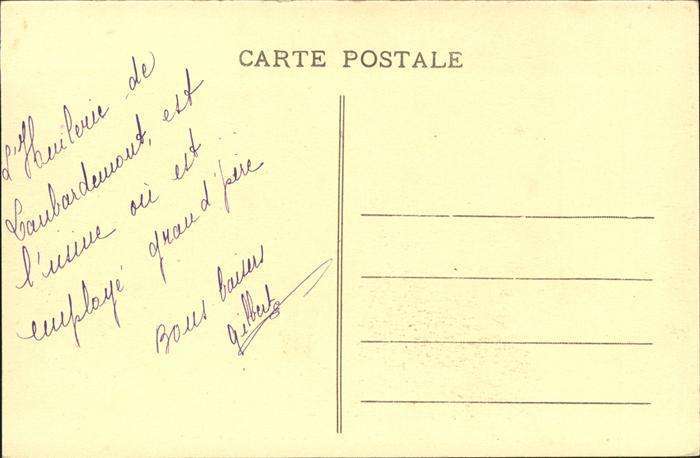 CARTE POSTALE
L'Huilerie de
Laubardemont, est
l'usine où est
employé grand'père
Bons baisers
Gilbert